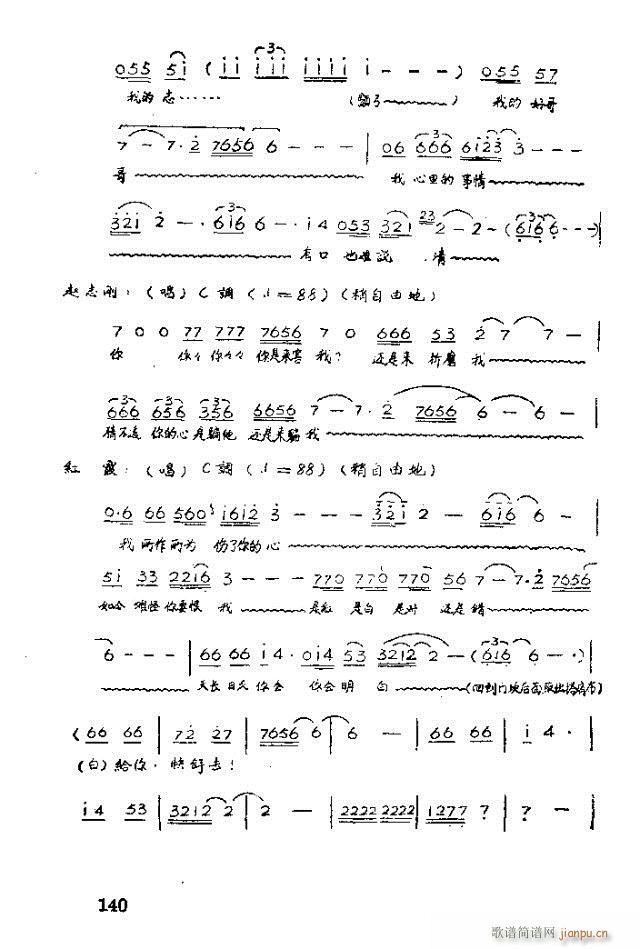 055 5i ( ii iii iiii i - - - ) 055 57
我的志…… (骗了 ) 我的 好哥
7 - 7·2 7656 6 - - - | 06 666 6123 3 - - -
哥 我 心里的 事情
321 2 - · 616 6 - · i4 053 321 23 2 - 2 - (616 6 - - ·)
有口 也难 说 清
赵志刚:(唱)C調(♩=88)(稍自由地)
7 0 0 77 777 7656 7 0 666 53 2 7 7 7 -
你 你々 你々々 你是来害 我? 还是来 折磨 我
666 656 356 6656 7 - 7· 2 7656 6 - 6 -
你的心 是 骗他 还是来骗 我
紅 霞:(唱)C調(♩=88)(稍自由地)
0·6 66 560 i6i2 3 - - - 321 2 - 616 6 -
我 所作所为 伤了你的 心
5i 33 22i6 3 - - - 770 770 770 56 7 - 7·2 7656
如今 难怪 你要恨 我 是红 是白 是对 还是 错
6 - - - | 66 66 i4· 0i4 53 32i2 2 - (6i6 6 - ·)
天长 日久 你会 你会 明 白
(66 66 | 72 27 | 7656 6 | 6 - | 66 66 | i 4 · |
(白)給你,快舒去!
i4 53 | 32i2 2 | 2 - | 2222 2222 | 1277 ? | ? -
140
歌谱简谱网
jianpu.cn